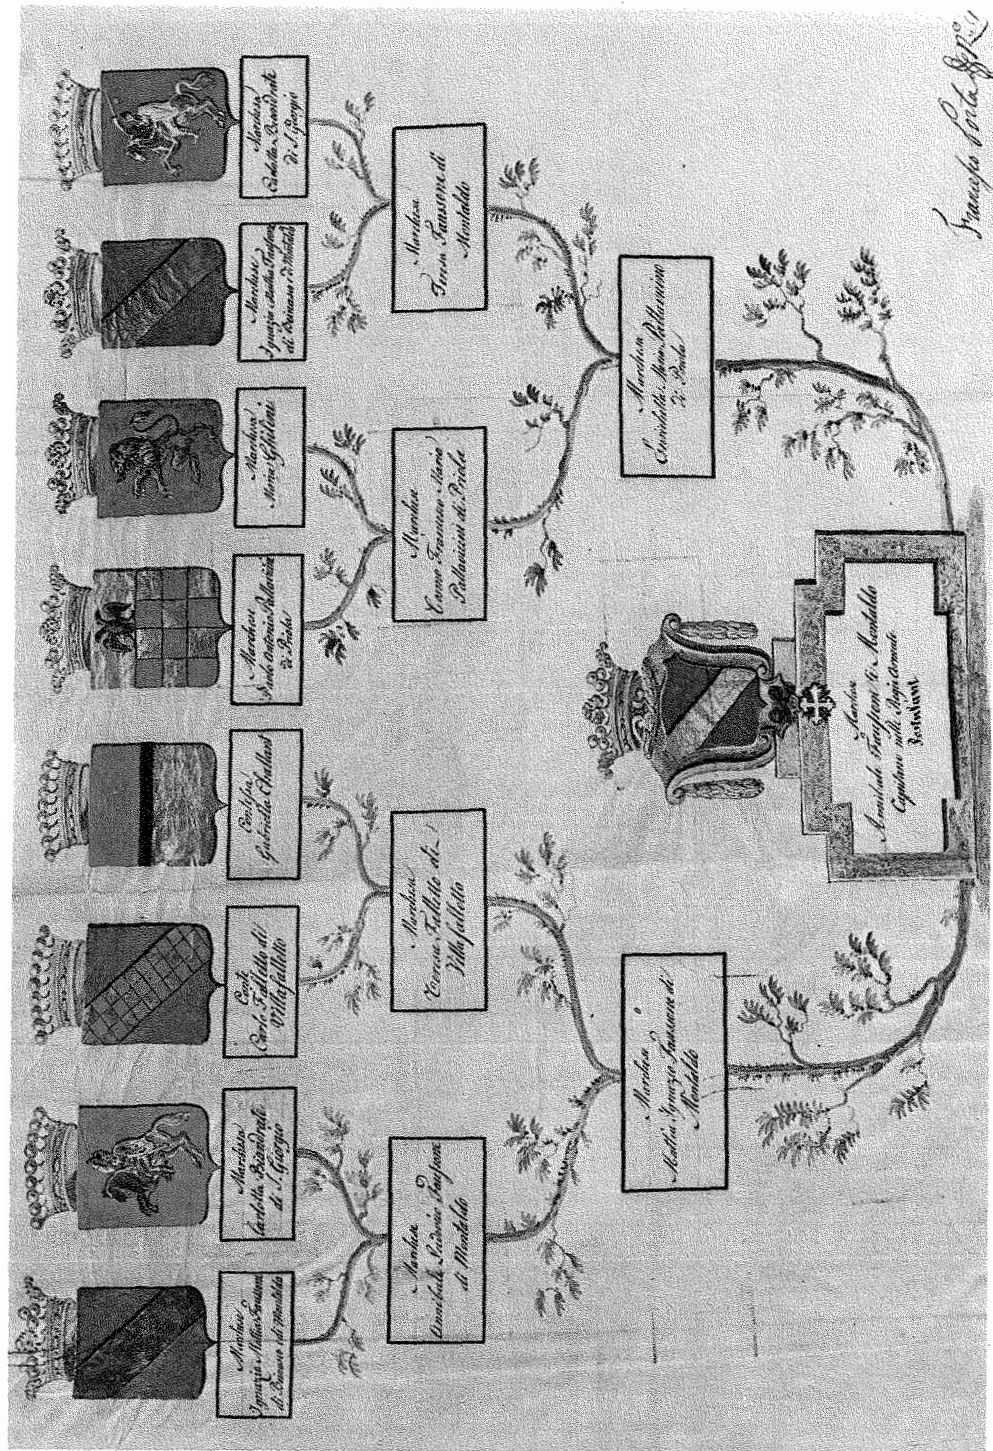 Marchese
Ignazio Mattia Faussoni
di Germano e di Montaldo
Marchesa
Carlotta Biandrati
di S. Giorgio
Conte
Carlo Falletto di
Villafalletto
Contessa
Gabriella Challant
Marchese
Paolo Antonio Pallavicin
di Priola
Marchesa
Maria Ghilini
Marchese
Ignazio Mattia Faussoni
di Germano e di Montaldo
Marchesa
Carlotta Biandrati
di S. Giorgio
Marchese
Annibale Ludovico Faussone
di Montaldo
Marchesa
Teresa Falletto di
Villafalletto
Marchese
Francesco Maria
Pallavicini di Priola
Marchesa
Teresa Faussone di
Montaldo
Marchese
Mattia Ignazio Faussone di
Montaldo
Marchesa
Maria Pallavicino
di Priola
Marchese
Annibale Faussoni di Montaldo
Capitano nelle Regie Armate
Postulant
Francesco Porta